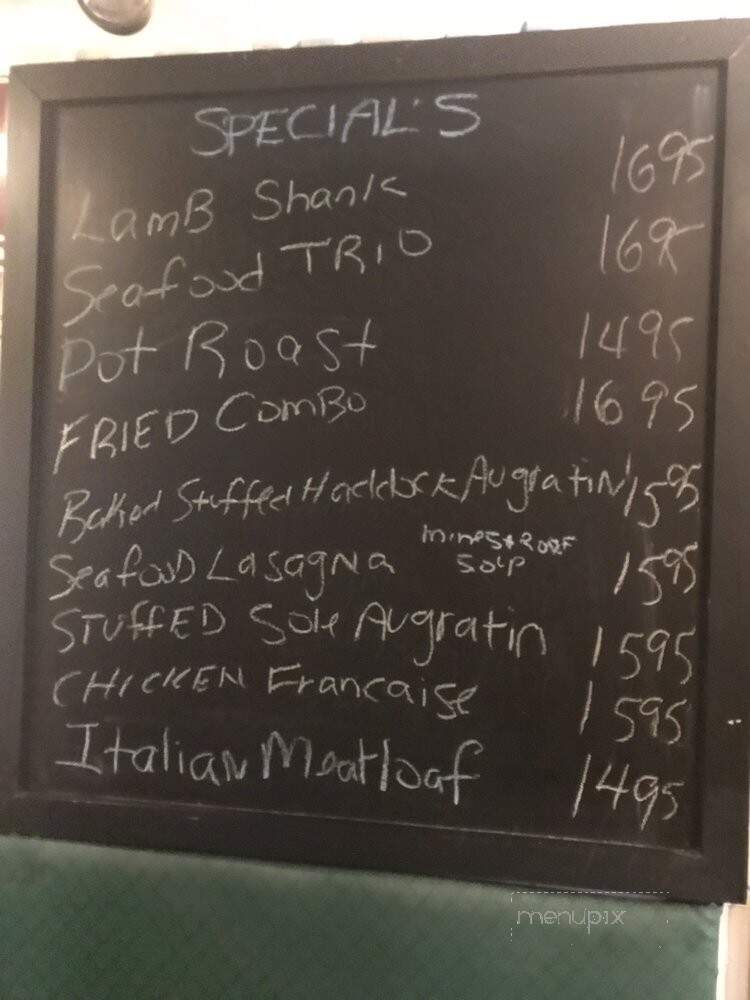 SPECIAL'S
LamB Shank 1695
Seafood TRIO 1695
Pot Roast 1495
FRIED ComBo 1695
Baked Stuffed Haddock AugratiN 1595
Seafood LasagNa 1595
SOUP
STUFFED Sole Augratin 1595
CHICKEN Francaise 1595
Italian Meatloaf 1495
menupix